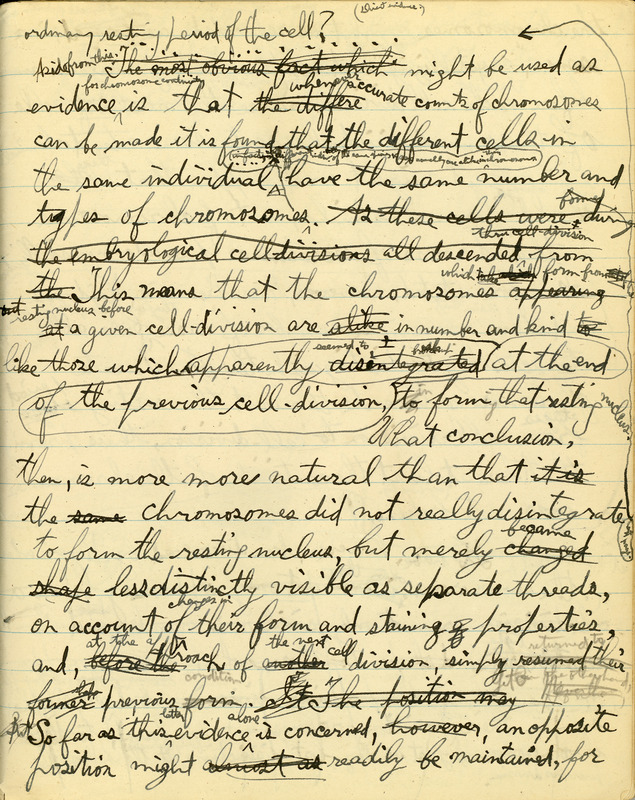 ordinary resting period of the cell?
Aside from this, The most obvious fact which might be used as
for chromosome continuity whenever accurate
evidence is that the differe counts of chromosomes
can be made it is found that the different cells in
the same individual have the same number and
types of chromosomes. As these cells were formed during
thru cell-division
the embryological cell-divisions all descended from
the This means that the chromosomes which appearing form from
resting nucleus before
at a given cell-division are alike in number and kind to
like those which apparently seemed to disintegrated at the end
of the previous cell-division, to form that resting nucleus.
What conclusion,
then, is more more natural than that it is
the same chromosomes did not really disintegrate
to form the resting nucleus, but merely became changed
shape less distinctly visible as separate threads,
on account of changes in their form and staining properties,
and, at the approach before the of the next another cell division, simply resumed their
former previous form condition The position may
But So far as this latter evidence alone is concerned, however, an opposite
position might almost as readily be maintained, for